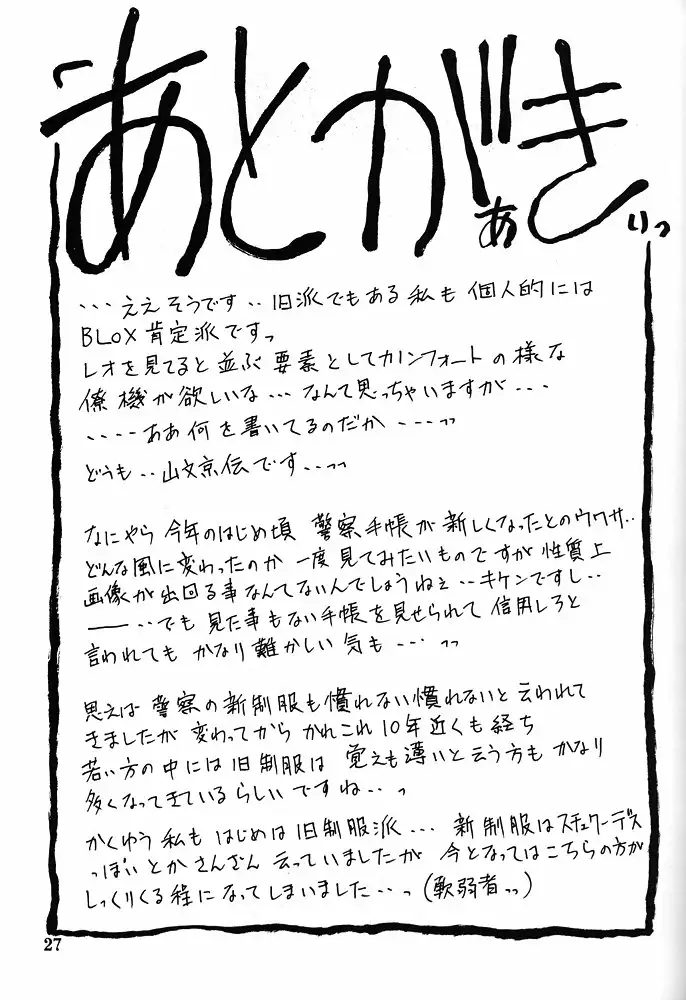 あとがき
ぁ ぃっ
・・・ええそうです・・旧派でもある私も 個人的には
BLOX肯定派ですっ
レオを見てると並ぶ要素としてカノンフォートの様な
僚機が欲しいな・・・なんて思っちゃいますが・・・
・・・・・ああ何を書いてるのだか ・・・・っっ
どうも・・山文京伝です・・・っっ
なにやら今年のはじめ頃 警察手帳が新しくなったとのウワサ・・
どんな風に変わったのか 一度見てみたいものですが性質上
画像が出回る事なんてないんでしょうねぇ・・キケンですし・・
――・・でも 見た事もない手帳を見せられて 信用しろと
言われても かなり難かしい気も・・・ っっ
思えば 警察の新制服も慣れない慣れないと云われて
きましたが 変わってから かれこれ10年近くも経ち
若い方の中には旧制服は 覚えも薄いと云う方も かなり
多くなってきているらしいですね・・っ
かくゆう私も はじめは旧制服派・・・ 新制服はスチュワーデス
っぽいとかさんざん 云っていましたが 今となってはこちらの方が
しっくりくる程になってしまいました・・・っ（軟弱者っっ）
27